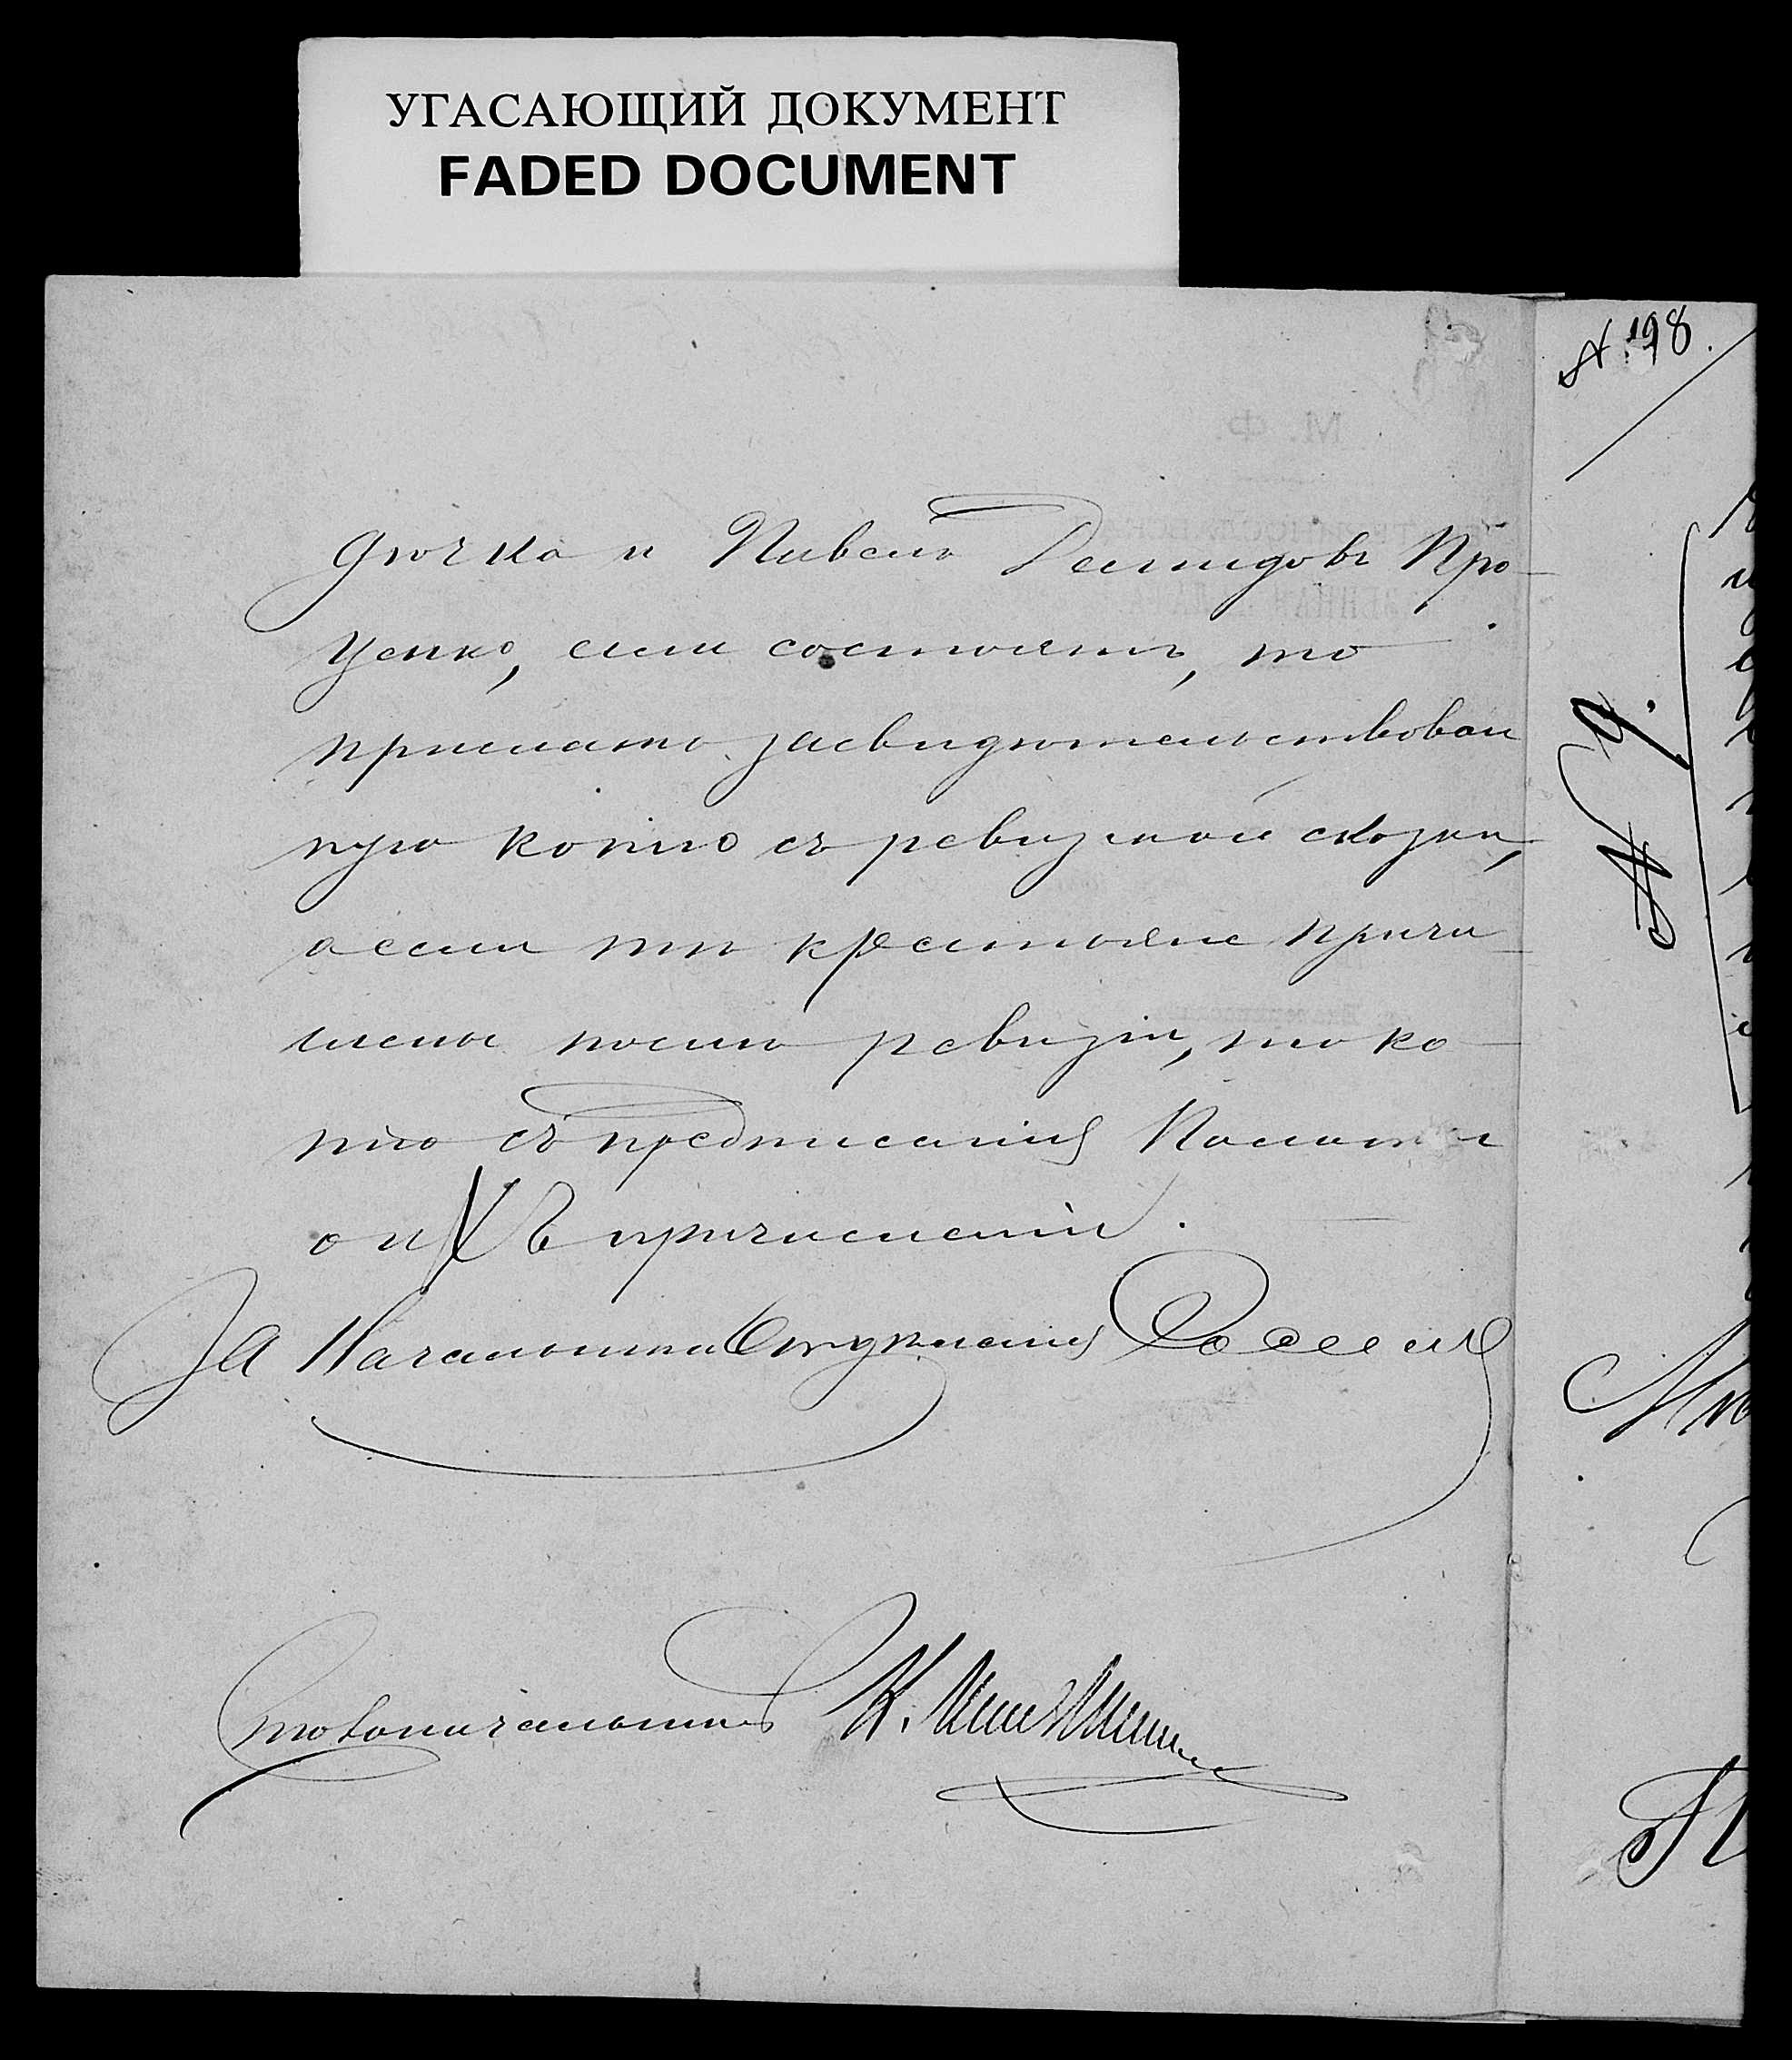 УГАСАЮЩИЙ ДОКУМЕНТ
FADED DOCUMENT
№ 198.
дючка и Павелъ Демидовъ Про
ценко, если состоятъ, то
прислать засвидѣтельствован
ную копію съ ревизской сказки,
а если тѣ крестьяне причи
слены послѣ ревизіи, то ко
пію съ предписанія Палаты
о ихъ причисленіи.
За Начальника Отдѣленія
Столоначальникъ К.
№ 9.